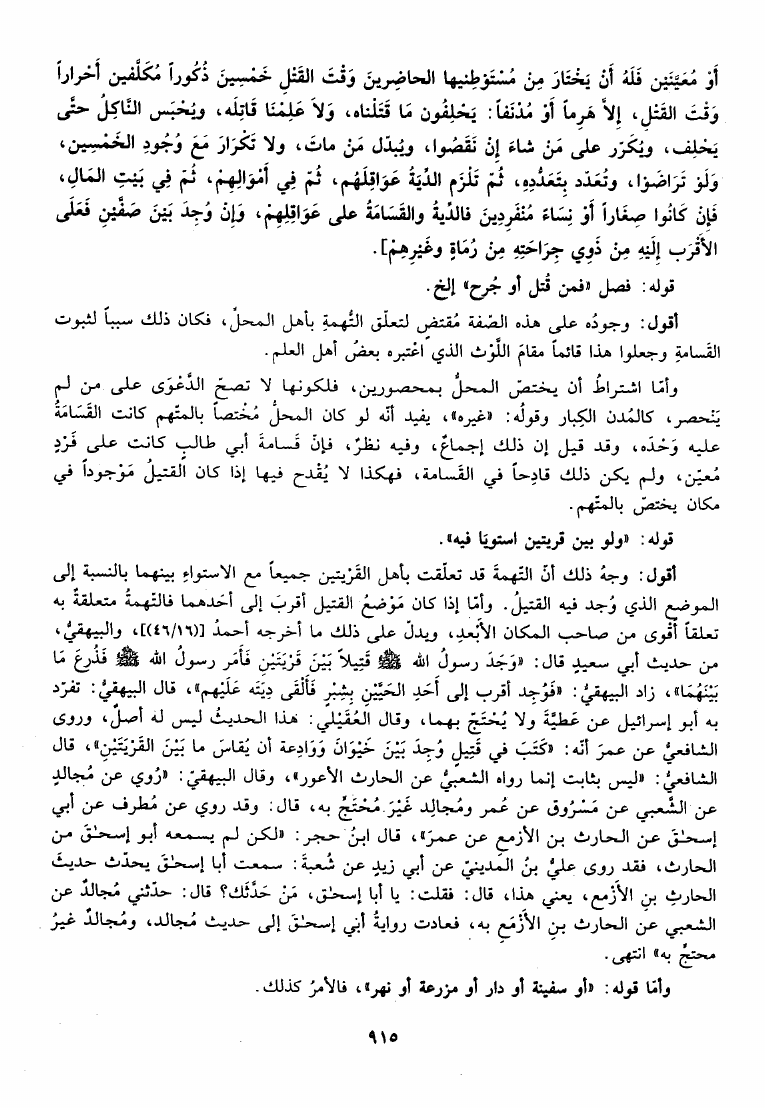 أَوْ مُعَيَّنَيْن فَلَهُ أَنْ يَخْتَارَ مِنْ مُسْتَوْطِنِيها الحاضِرينَ وَقْتَ القَتْلِ خَمْسِينَ ذُكُوراً مُكَلَّفين أَحْراراً
وَقْتَ القَتْلِ، إلاَّ هَرِماً أَوْ مُدْنَفاً: يَحْلِفُون مَا قَتَلْناه، وَلاَ عَلِمْنَا قَاتِلَه، ويُحْبَس النَّاكِلُ حتَّى
يَحْلِف، ويُكَرّر على مَنْ شاءَ إنْ نَقَصُوا، ويُبدّل مَنْ ماتَ، ولا تَكْرَارَ مَعَ وُجُودِ الخَمْسِين،
وَلَوْ تَرَاضَوْا، وتُعَدّد بِتَعَدُّدِهِ، ثُمّ تَلْزَم الدِّيَةُ عَوَاقِلَهُم، ثُمّ فِي أَمْوَالِهِمْ، ثُمّ فِي بَيْتِ المَالِ،
فَإِنْ كَانُوا صِغَاراً أَوْ نِسَاءً مُنْفَرِدِينَ فالدِّيةُ والقَسَامَةُ على عَوَاقِلِهِمْ، وَإِنْ وُجِدَ بَيْنَ صَفَّيْنِ فَعَلَى
الأَقْرَبِ إلَيْهِ مِنْ ذَوِي جِرَاحَتِهِ مِنْ رُمَاةٍ وغَيْرِهِمْ].
قوله: فصل «فمن قُتل أو جُرح» إلخ.
أقول: وجودُه على هذه الصّفة مُقتضٍ لتعلّق التُّهمةِ بأهل المحلّ، فكان ذلك سبباً لثبوت
القَسامةِ وجعلوا هذا قائماً مقامَ اللَّوْث الذي اعْتبره بعضُ أهل العلم.
وأمّا اشتراطُ أن يختصّ المحلُّ بمحصورين، فلكونها لا تصحّ الدَّعْوَى على من لم
يَنْحصر، كالمُدن الكِبار وقولُه: «غيره»، يفيد أنّه لو كان المحلُّ مُخْتصاً بالمتّهم كانت القَسَامَةُ
عليه وَحْدَه، وقد قيل إن ذلك إجماعٌ، وفيه نظرٌ، فإنّ قَسامةَ أبي طالبٍ كانت على فَرْدٍ
مُعيّن، ولم يكن ذلك قادِحاً في القَسامة، فهكذا لا يُقْدح فيها إذا كان القتيلُ مَوْجوداً في
مكان يختصّ بالمتّهم.
قوله: «ولو بين قريتين استويَا فيه».
أقول: وجهُ ذلك أنّ التّهمةَ قد تعلّقت بأهل القَرْيتين جميعاً مع الاستواءِ بينهما بالنسبة إلى
الموضعِ الذي وُجد فيه القتيلُ. وأمّا إذا كان مَوْضعُ القتيل أقربَ إلى أحَدهما فالتّهمةُ متعلقةٌ به
تعلقاً أَقْوى من صاحب المكان الأَبْعدِ، ويدلّ على ذلك ما أخرجه أحمدُ [(٤٦/١٦)]، والبيهقيُّ،
من حديث أبي سعيدٍ قال: «وَجَدَ رسولُ الله ﷺ قَتِيلاً بَيْنَ قَرْيَتَيْنِ فَأَمَر رسولُ الله ﷺ فَذُرِعَ مَا
بَيْنَهُمَا»، زاد البيهقيُّ: «فَوُجِد أقرب إلى أَحَدِ الحَيَّيْنِ بِشِبْرٍ فَأَلْقَى دِيَته عَلَيْهِم»، قال البيهقيُّ: تفرّد
به أبو إسرائيل عن عَطيَّةَ ولا يُحْتَجّ بهما، وقال العُقَيْلي: هذا الحديثُ ليس له أصلٌ، وروى
الشافعيُّ عن عمرَ أنّه: «كَتَبَ في قَتِيلٍ وُجِدَ بَيْنَ خَيْوَانَ وَوَادِعة أن يُقاسَ ما بَيْنَ القَرْيَتَيْنِ»، قال
الشافعيُّ: «ليس بثابت إنما رواه الشعبيُّ عن الحارث الأعور»، وقال البيهقيّ: «رُوي عن مُجالدٍ
عن الشَّعبي عن مَسْرُوق عن عُمر ومُجالِد غَيْرَ مُحْتَجٍّ به، قال: وقد روي عن مُطرف عن أبي
إسحٰقَ عن الحارث بن الأزمع عن عمرَ»، قال ابنُ حجر: «لكن لم يسمعه أبو إسحٰقَ من
الحارث، فقد روى عليُّ بنُ المَدينيّ عن أبي زيدٍ عن شُعبةَ: سمعت أبا إسحٰقَ يحدّث حديثَ
الحارثِ بنِ الأزْمع، يعني هذا، قال: فقلت: يا أبا إسحٰق، مَنْ حَدَّثَك؟ قال: حدّثني مُجالدٌ عن
الشعبي عن الحارث بن الأَزْمَعِ به، فعادت روايةُ أبي إسحٰقَ إلى حديث مُجالد، ومُجالدٌ غيرُ
محتجٍّ به» انتهى.
وأمّا قوله: «أو سفينة أو دار أو مزرعة أو نهر»، فالأمرُ كذلك.
٩١٥